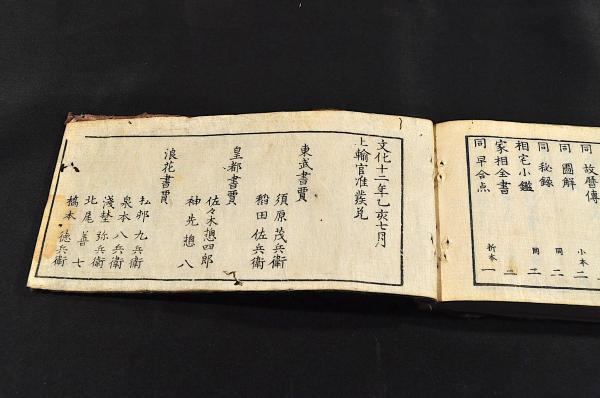 同 故暦傳 二
同 圖解 小本 二
同 秘録 同 二
相宅小鑑 同 二
家相全書 二
同 早合点 折本 一
文化十二年乙亥七月
上輸官准發兌
東武書賈
須原茂兵衛
稲田佐兵衛
皇都書賈
佐々木惣四郎
神先惣八
浪花書賈
松邨九兵衛
泉本八兵衛
淺埜弥兵衛
北尾善七
橋本徳兵衛